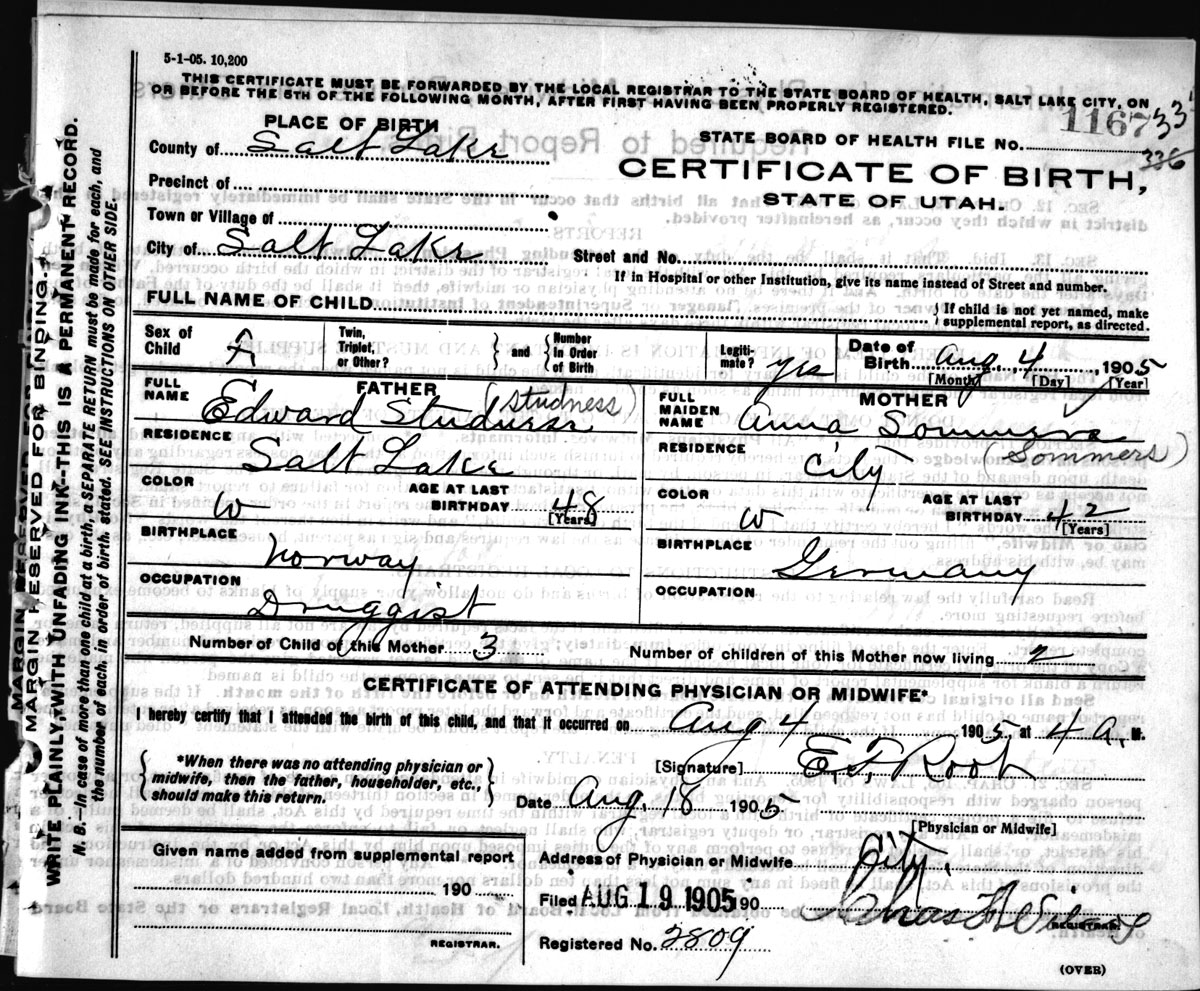 5-1-05. 10,200
THIS CERTIFICATE MUST BE FORWARDED BY THE LOCAL REGISTRAR TO THE STATE BOARD OF HEALTH, SALT LAKE CITY, ON
OR BEFORE THE 5TH OF THE FOLLOWING MONTH, AFTER FIRST HAVING BEEN PROPERLY REGISTERED.
PLACE OF BIRTH
County of Salt Lake
Precinct of
Town or Village of
City of Salt Lake
STATE BOARD OF HEALTH FILE NO. 1167 33
336
CERTIFICATE OF BIRTH,
STATE OF UTAH.
Street and No.
If in Hospital or other Institution, give its name instead of Street and number.
FULL NAME OF CHILD
If child is not yet named, make
supplemental report, as directed.
Sex of Child F
Twin, Triplet, or Other?
and
Number in Order of Birth
Legiti-mate? yes
Date of Birth Aug. 4, 1905
[Month] [Day] [Year]
FATHER
FULL NAME Edward Studness (Studness)
RESIDENCE
Salt Lake
COLOR W
AGE AT LAST BIRTHDAY 48
[Years]
BIRTHPLACE
Norway
OCCUPATION
Druggist
MOTHER
FULL MAIDEN NAME Anna Sommers
(Sommers)
RESIDENCE City
COLOR W
AGE AT LAST BIRTHDAY 42
[Years]
BIRTHPLACE
Germany
OCCUPATION
Number of Child of this Mother 3
Number of children of this Mother now living 2
CERTIFICATE OF ATTENDING PHYSICIAN OR MIDWIFE*
I hereby certify that I attended the birth of this child, and that it occurred on Aug 4 1905 at 4 A. M.
*When there was no attending physician or
midwife, then the father, householder, etc.,
should make this return.
[Signature] E. F. Root
Date Aug. 18 1905
[Physician or Midwife]
Given name added from supplemental report
190
REGISTRAR.
Address of Physician or Midwife City
Filed AUG 19 1905 190
REGISTRAR.
Registered No. 2809
(OVER)
MARGIN RESERVED FOR BINDING.
WRITE PLAINLY, WITH UNFADING INK--THIS IS A PERMANENT RECORD.
N. B.—In case of more than one child at a birth, a SEPARATE RETURN must be made for each, and
the number of each, in order of birth, stated. SEE INSTRUCTIONS ON OTHER SIDE.